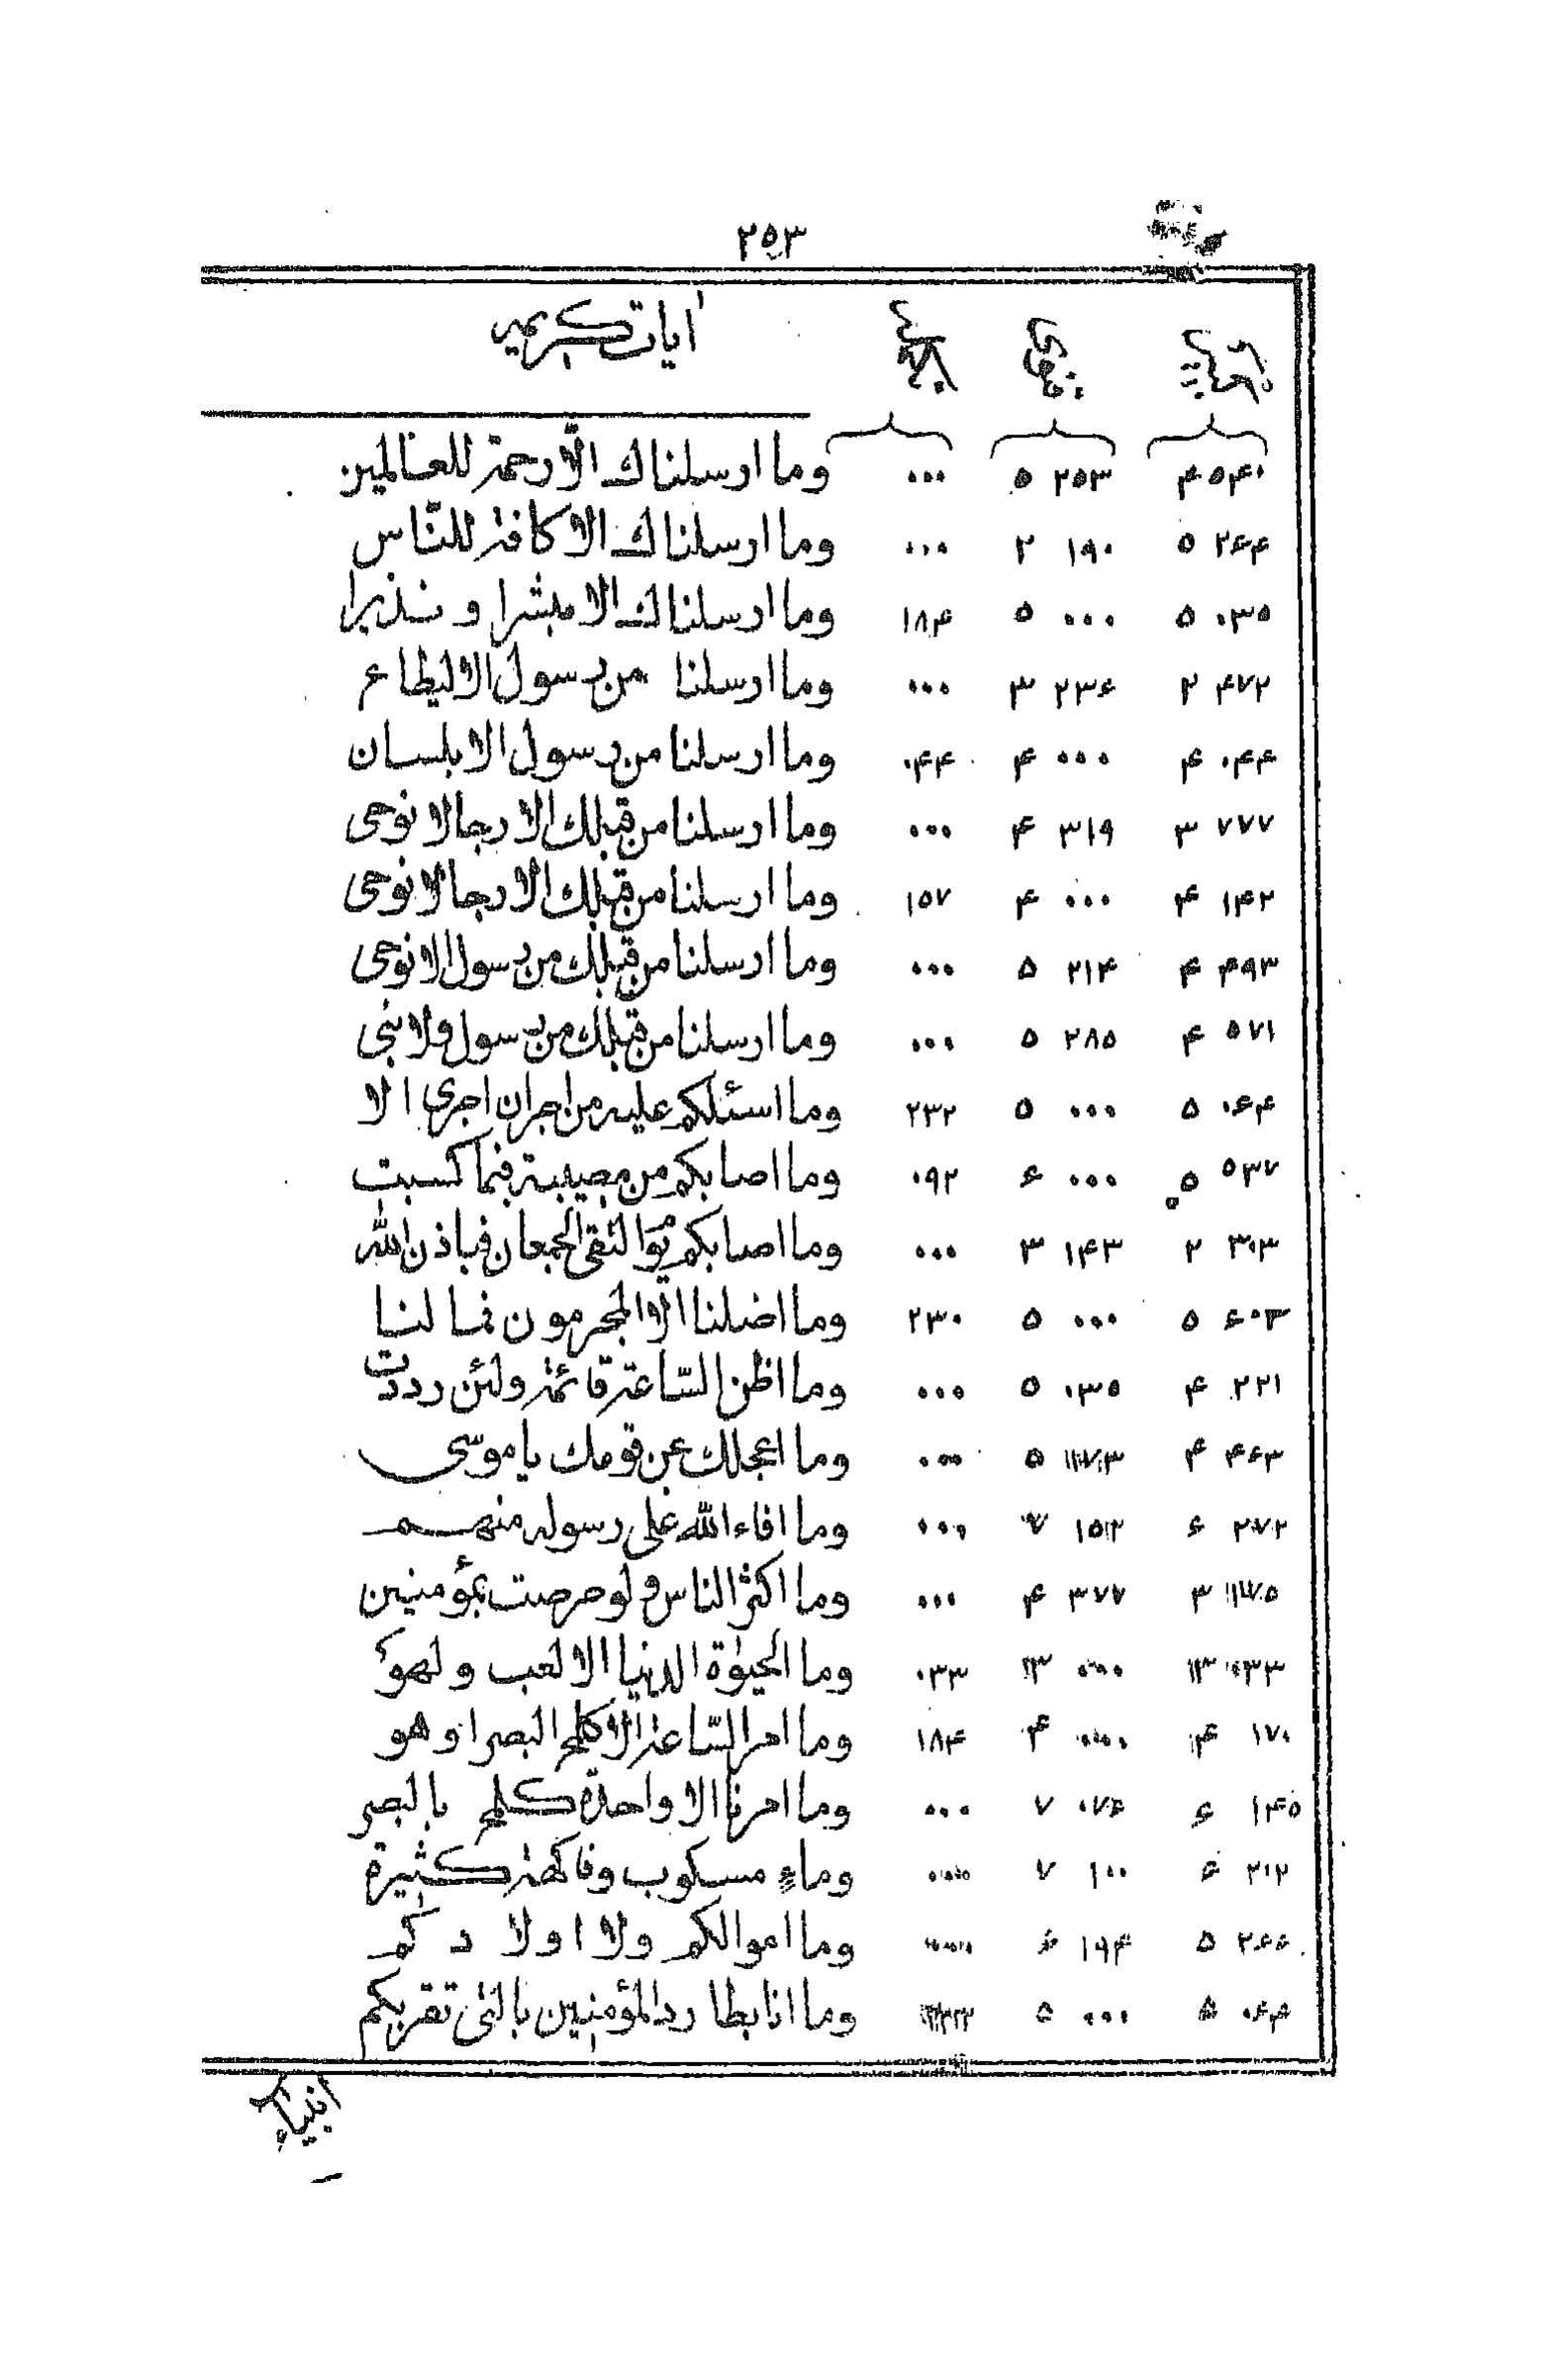 ٢٥٣
ايات كريمه
۴ ۵۴۰ ۵ ۲۵۳ ۰۰۰ وما ارسلناك الّا رحمة للعالمين
۵ ۲۶۴ ۲ ۱۹۰ ۰۰۰ وما ارسلناك الا كافة للنّاس
۵ ۰۳۵ ۵ ۰۰۰ ۱۸۴ وما ارسلناك الا مبشرا و نذيرا
۲ ۴۷۲ ۳ ۲۳۶ ۰۰۰ وما ارسلنا من رسول الا ليطاع
۴ ۰۴۴ ۴ ۰۰۰ ۰۴۴ وما ارسلنا من رسول الا بلسان
۳ ۷۷۷ ۴ ۳۱۹ ۰۰۰ وما ارسلنا من قبلك الا رجالا نوحى
۴ ۱۴۲ ۴ ۰۰۰ ۱۵۷ وما ارسلنا من قبلك الا رجالا نوحى
۴ ۴۹۳ ۵ ۲۱۴ ۰۰۰ وما ارسلنا من قبلك من رسول الا نوحى
۴ ۵۷۱ ۵ ۲۸۵ ۰۰۰ وما ارسلنا من قبلك من رسول ولا نبى
۵ ۰۶۴ ۵ ۰۰۰ ۲۳۲ وما اسئلكم عليه من اجر ان اجرى الا
۵ ۵۳۷ ۶ ۰۰۰ ۰۹۲ وما اصابكم من مصيبة فبما كسبت
۲ ۳۰۳ ۳ ۱۴۳ ۰۰۰ وما اصابكم يوم التقى الجمعان فباذن الله
۵ ۶۰۳ ۵ ۰۰۰ ۲۳۰ وما اضلنا الّا المجرمون فما لنا
۴ ۲۲۱ ۵ ۰۳۵ ۰۰۰ وما اظن السّاعة قائمة ولئن رددت
۴ ۴۶۳ ۵ ۰۰۰ وما اعجلك عن قومك يا موسى
۶ ۲۷۲ ۷ ۱۵۲ ۰۰۰ وما افاء الله على رسوله منهم
۳ ۴ ۳۷۷ ۰۰۰ وما اكثر الناس ولو حرصت بمؤمنين
۳ ۰۳۳ ۳ ۰۰۰ ۰۳۳ وما الحيوة الدنيا الا لعب ولهو
۴ ۱۷۰ ۴ ۰۰۰ ۱۸۴ وما امر السّاعة الا كلمح البصر او هو
۶ ۱۴۵ ۷ ۰۷۶ ۰۰۰ وما امرنا الا واحدة كلمح بالبصر
۶ ۲۰۲ ۷ ۱۰۰ ۰۰۰ وماء مسكوب وفاكهة كثيرة
۵ ۲۶۶ ۶ ۱۹۴ ۰۰۰ وما اموالكم ولا اولادكم
۵ ۰۶۴ ۵ ۰۰۰ وما انا بطارد المؤمنين بالتى تقربكم